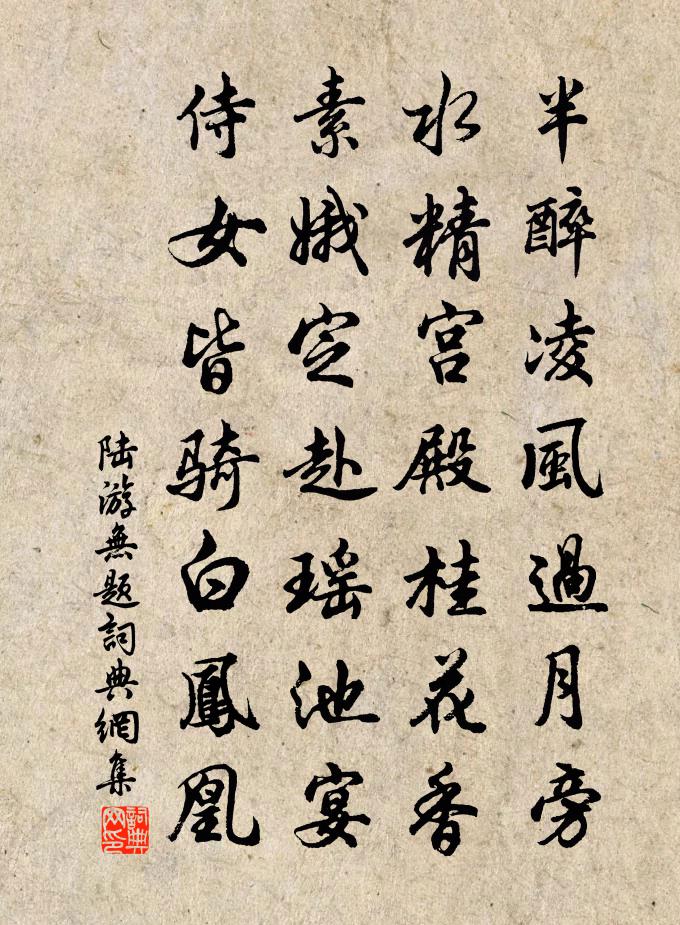 半醉凌風過月旁
水精宮殿桂花香
素娥定赴瑤池宴
侍女皆騎白鳳凰
陆游無题詞典網集
詞典网印